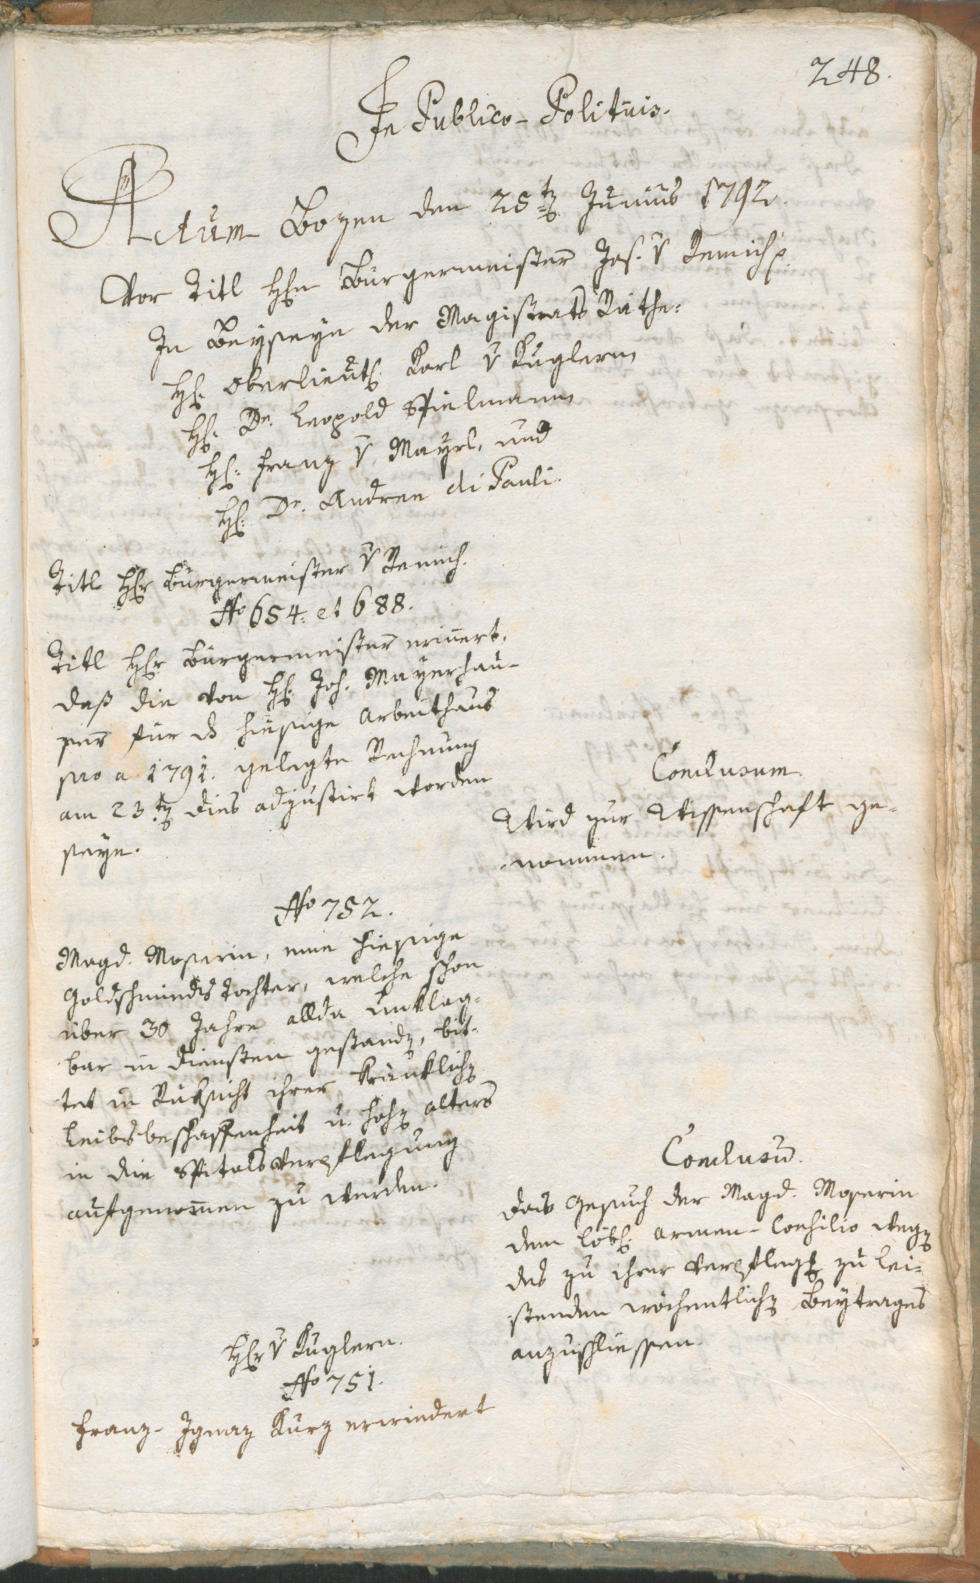 248.
In Publico-Politicis.
Actum Bozen den 25ten Junius 1792.
Vor Titl Hhn Bürgermeister Jos. v Remich p.
In Beyseyn der Magistrats Räthe:
H: Oberlieut: Karl v Kuglern
H: Dr. Leopold Spielmann
H: Franz v Mayrl, und
H: Dr. Andreé di Pauli.
Titl Hhr Bürgermeister v Remich.
No 654. et 688.
Titl Hhr Bürgermeister erinnert,
daß die von H: Joh. Mayrhau-
ser für d hiesige Arbeithaus
pro a 1791. gelegte Rechnung
am 23ten dies adjustirt worden
seye.
Conclusum
Wird zur Wissenschaft ge-
nommen.
No 752.
Magd. Moserin, eine hiesige
Goldschmiedts Tochter, welche schon
über 30 Jahre allda unklag-
bar in Diensten gestanden, bit-
tet in Rüksicht ihrer kränklichen
Leibsbeschaffenheit u. hohen alters
in die Spitalsverpflegung
aufgenommen zu werden.
Conclusum.
Das Gesuch der Magd. Moserin
dem löbl: Armen-Consilio wegen
des zu ihrer Verpflegung zu lei-
stenden wöchentlichen Beytrages
anzuschliessen.
Hhr v Kuglern.
No 751.
Franz-Ignaz Kurz erwiedert